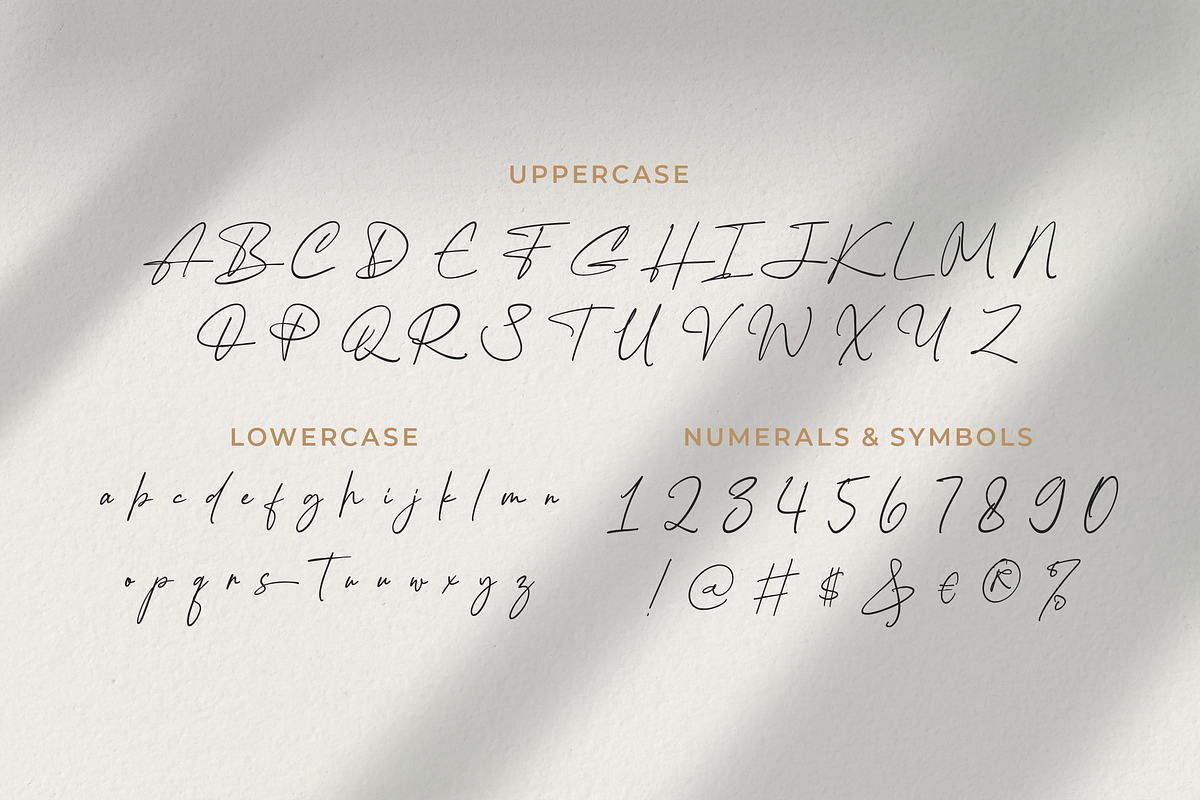 UPPERCASE
A B C D E F G H I J K L M N
O P Q R S T U V W X Y Z
LOWERCASE
a b c d e f g h i j k l m n
o p q r s t u v w x y z
NUMERALS & SYMBOLS
1 2 3 4 5 6 7 8 9 0
! @ # $ & € ® %